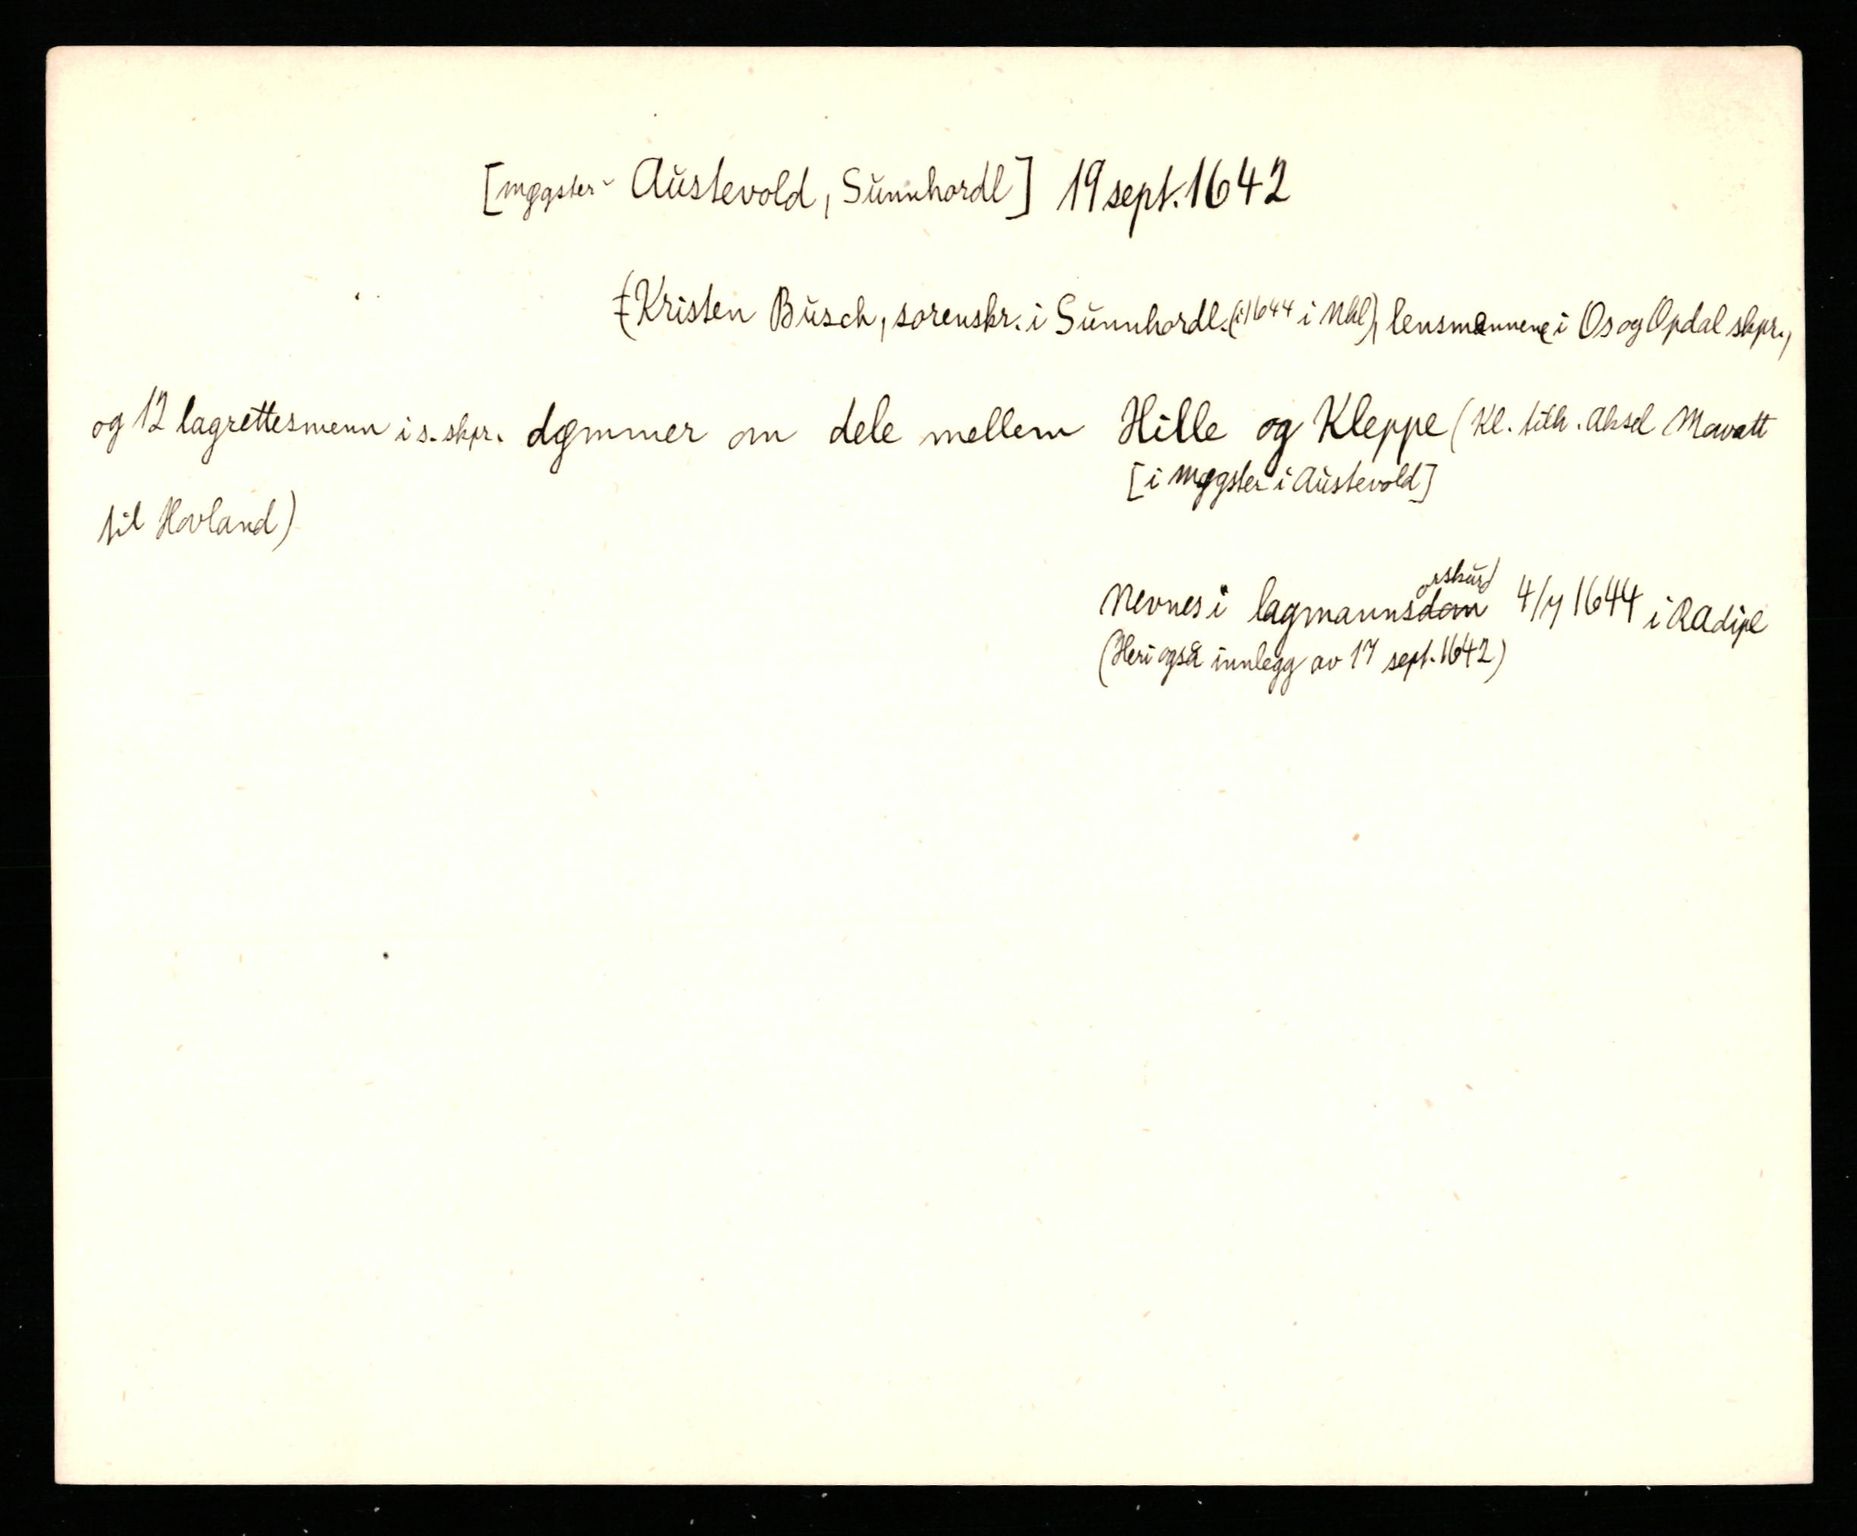 [Møgster- Austevold, Sunnhordl] 19 sept. 1642
(Kristen Busch, sorenskr. i Sunnhordl. (i 1644 i Nhl), lensmennene i Os og Opdal skpr.,
og 12 lagrettesmenn i s. skpr. dømmer om dele mellem Hille og Kleppe (Kl. tilh. Aksel Mowatt
[i Møgster i Austevold]
til Hovland)
orskurd
Nevnes i lagmannsdom 4/7 1644 i RA dipl
(Heri også innlegg av 17 sept. 1642)